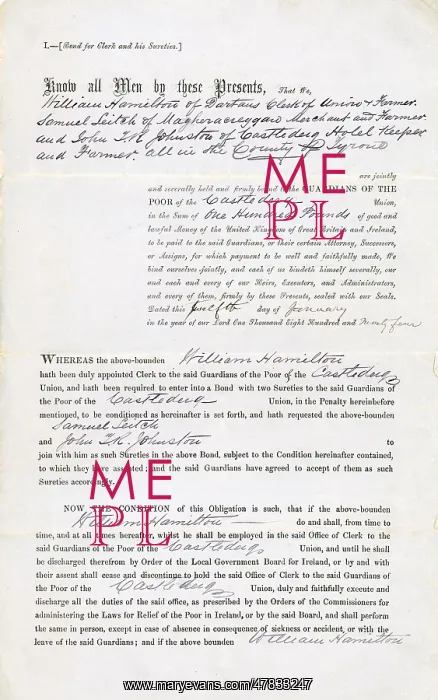 I.—[Bond for Clerk and his Sureties.]
Know all Men by these Presents, That We,
William Hamilton of Dartans Clerk of Union & Farmer.
Samuel Leitch of Magheracreggan Merchant and Farmer
and John T.R. Johnston of Castlederg Hotel Keeper
and Farmer. all in the County of Tyrone
are jointly
and severally held and firmly bound to the GUARDIANS OF THE
POOR of the Castlederg Union,
in the Sum of One Hundred Pounds of good and
lawful Money of the United Kingdom of Great Britain and Ireland,
to be paid to the said Guardians, or their certain Attorney, Successors,
or Assigns, for which payment to be well and faithfully made, We
bind ourselves jointly, and each of us bindeth himself severally, our
and each and every of our Heirs, Executors, and Administrators,
and every of them, firmly by these Presents, sealed with our Seals.
Dated this twelfth day of January
in the year of our Lord One Thousand Eight Hundred and Ninety four
WHEREAS the above-bounden William Hamilton
hath been duly appointed Clerk to the said Guardians of the Poor of the Castlederg
Union, and hath been required to enter into a Bond with two Sureties to the said Guardians of
the Poor of the Castlederg Union, in the Penalty hereinbefore
mentioned, to be conditioned as hereinafter is set forth, and hath requested the above-bounden
Samuel Leitch
and John T.R. Johnston to
join with him as such Sureties in the above Bond, subject to the Condition hereinafter contained,
to which they have assented; and the said Guardians have agreed to accept of them as such
Sureties accordingly.
NOW THE CONDITION of this Obligation is such, that if the above-bounden
William Hamilton do and shall, from time to
time, and at all times hereafter, whilst he shall be employed in the said Office of Clerk to the
said Guardians of the Poor of the Castlederg Union, and until he shall
be discharged therefrom by Order of the Local Government Board for Ireland, or by and with
their assent shall cease and discontinue to hold the said Office of Clerk to the said Guardians of
the Poor of the Castlederg Union, duly and faithfully execute and
discharge all the duties of the said office, as prescribed by the Orders of the Commissioners for
administering the Laws for Relief of the Poor in Ireland, or by the said Board, and shall perform
the same in person, except in case of absence in consequence of sickness or accident, or with the
leave of the said Guardians; and if the above bounden William Hamilton
ME
PL
ME
PL
www.maryevans.com/47833247